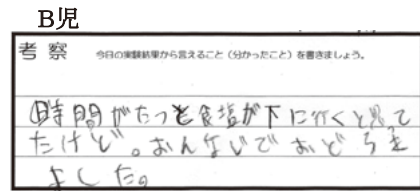 B児
考察 今日の実験結果から言えること（分かったこと）を書きましょう。
時間がたつと食塩が下に行くと思って
たけど。おんなじでおどろき
ました。